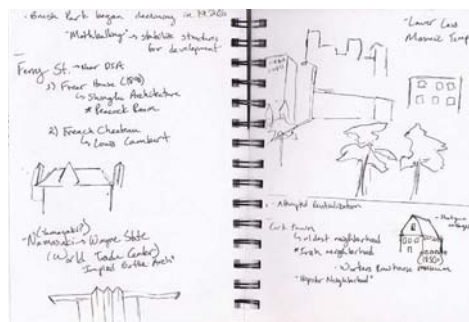 - Brush Park began decaying in 1920s
"Mothballing" → stabilize structures
for development
Ferry St. → Near DIA
1) Freer House (1890)
↳ Shingle Architecture
* Peacock Room
2) French Chateau
↳ Louis
(Yamasaki?)
- Wayne State
(World Trade Center)
Inspired Gothic Arch*
- Lower Cass
Masonic Temp
- Attempted Revitalization
Cork Town
↳ oldest neighborhood
* Irish neighborhood
- Workers Rowhouse
"Hipster Neighborhood"
- Shotgun
(1850s)